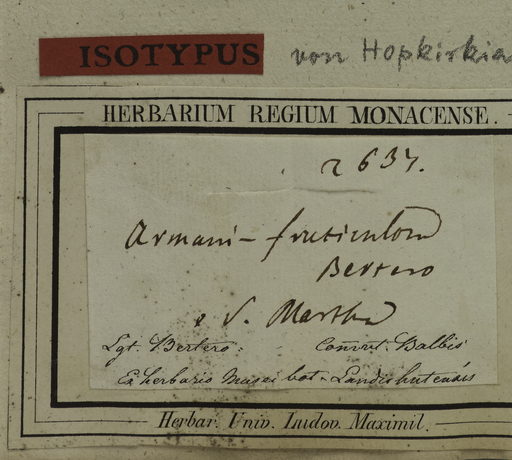 ISOTYPUS von Hopkirkia
HERBARIUM REGIUM MONACENSE.
2637.
Armani - fruticulosa
Bertero
S. Martha
Lgt. Bertero. Comm. Balbis
Ex herbario Musei bot. Landishutensis
Herbar. Univ. Ludov. Maximil.